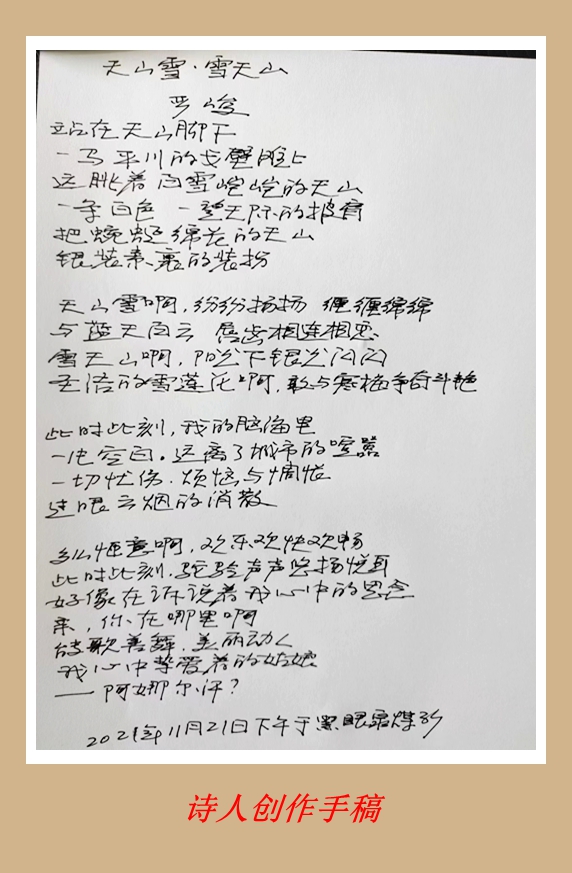 天山雪·雪天山
严峻
站在天山脚下
一马平川的戈壁滩上
远眺着白雪皑皑的天山
一条白色 一望无际的披肩
把蜿蜒绵长的天山
银装素裹的装扮
天山雪啊,纷纷扬扬 缠缠绵绵
与蓝天白云 唇齿相连相思
雪天山啊,阳光下银光闪闪
圣洁的雪莲花啊,敢与寒梅争奇斗艳
此时此刻,我的脑海里
一片空白。远离了城市的喧嚣
一切忧伤、烦恼与惆怅
过眼云烟的消散
多么惬意啊,欢乐欢快欢畅
此时此刻,驼铃声声悠扬悦耳
好像在诉说着我心中的思念
亲,你在哪里啊
能歌善舞,美丽动人
我心中挚爱着的姑娘
——阿娜尔汗?
2021年11月21日下午于黑眼泉煤矿
诗人创作手稿